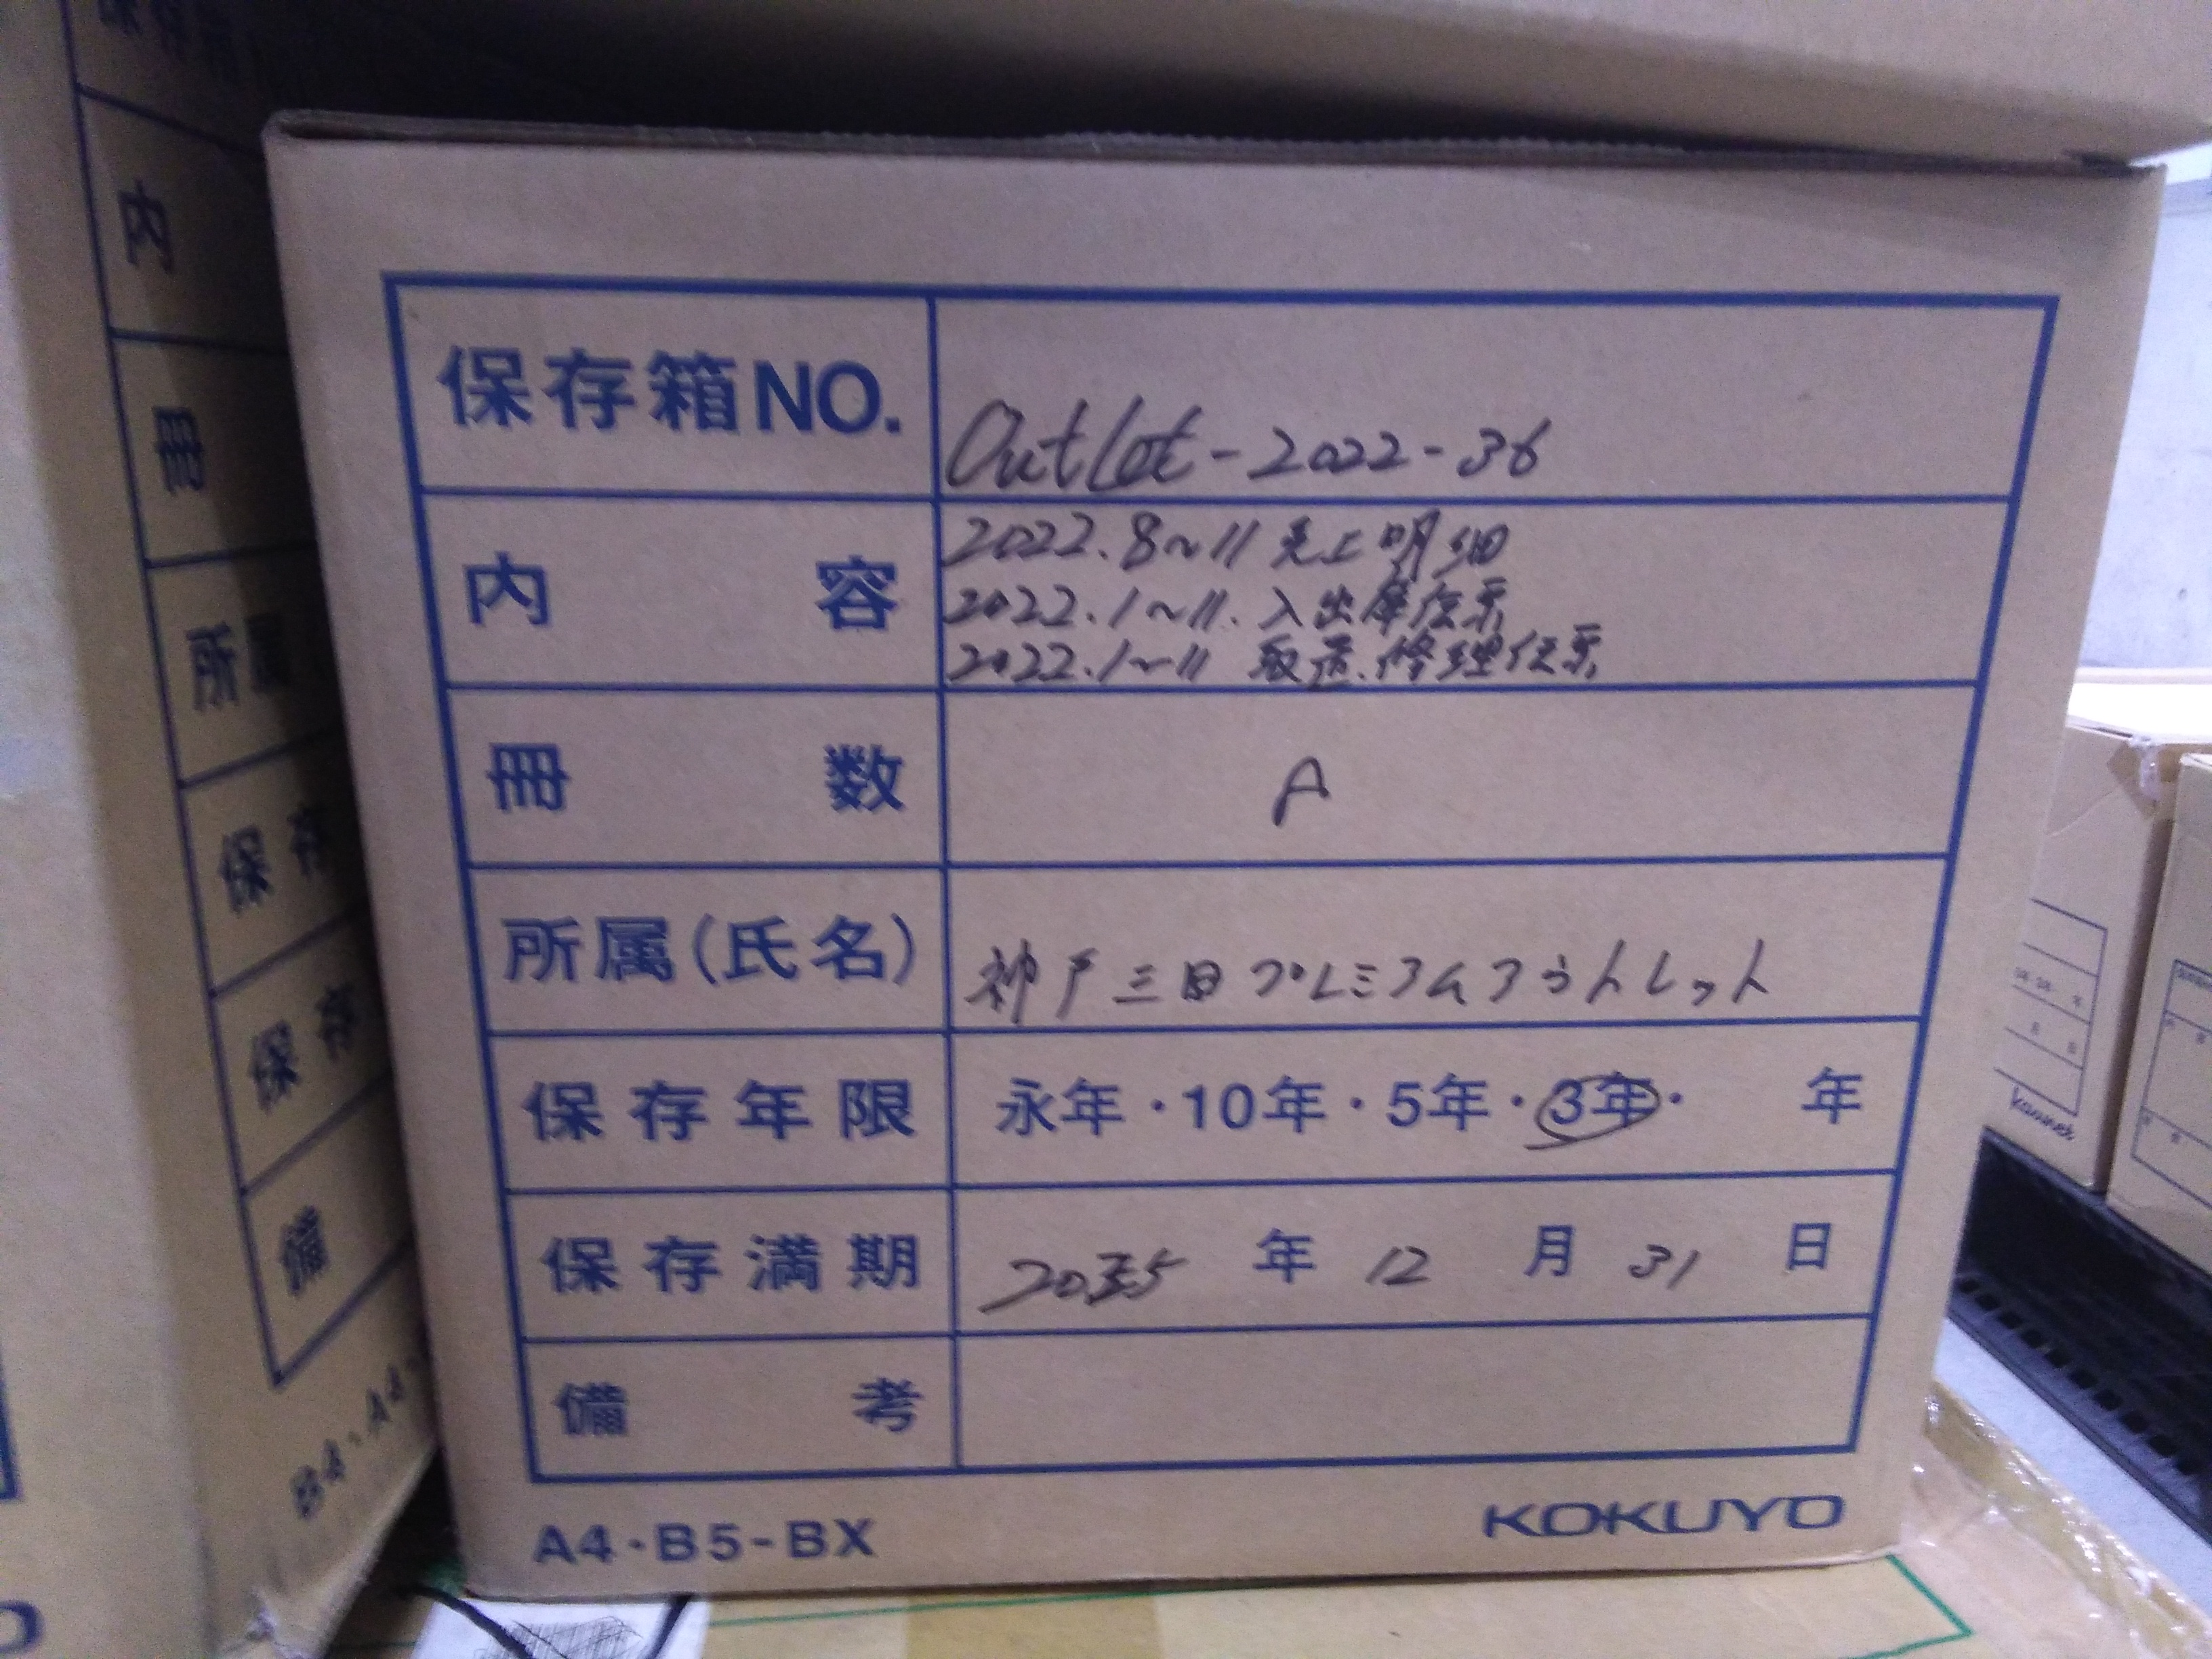 保存箱NO. Outlet-2022-36
内容 2022.8~11 売上明細
2022.1~11. 入出庫伝票
2022.1~11 取送.修理伝票
冊数 A
所属(氏名) 神戸三田プレミアムアウトレット
保存年限 永年・10年・5年・3年・ 年
保存満期 2025年12月31日
備考
A4・B5-BX KOKUYO
内
冊
所属
保存
保存
備
B4・A4
kaunet